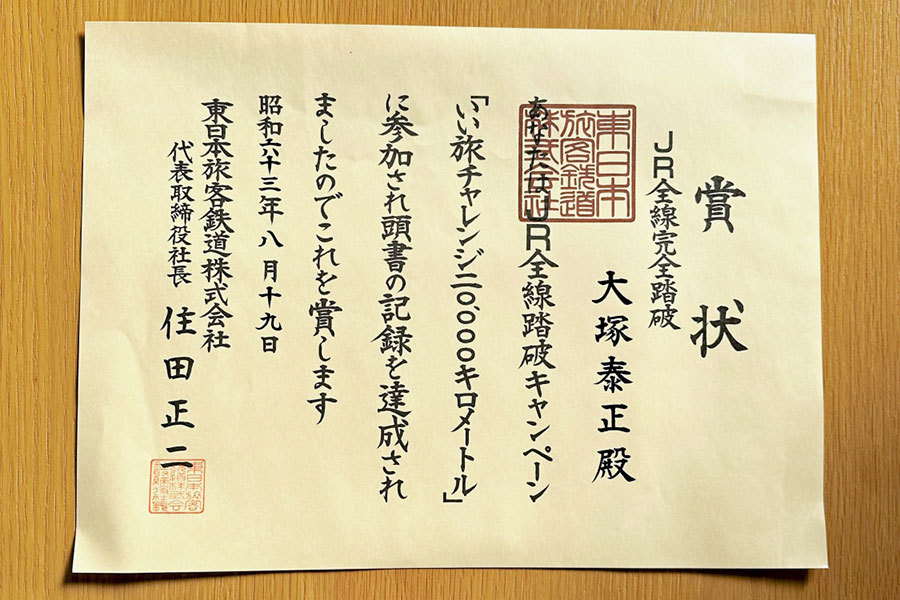 賞状
JR全線完全踏破
大塚泰正殿
あなたはJR全線踏破キャンペーン
「いい旅チャレンジ二〇、〇〇〇キロメートル」
に参加され頭書の記録を達成され
ましたのでこれを賞します
昭和六十三年八月十九日
東日本旅客鉄道株式会社
代表取締役社長 住田正二
東日本旅客鉄道株式会社